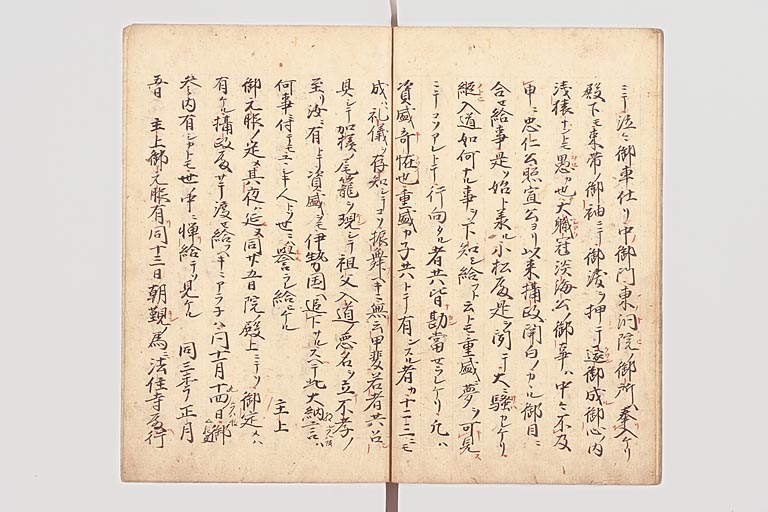 ニテ泣々御車仕リ中御門東洞院ノ御所ヘ奉入ケリ
殿下モ束帯ノ御袖ニテ御涙ヲ押ヘテ還御成御心ノ内
浅猿サトモ愚カ也大職冠淡海公ノ御事ハ中々不及
申ニ忠仁公昭宣公ヨリ以来摂政関白ノカヽル御目ニ
合セ給事是ソ始ト承ル小松殿是ヲ聞テ大ニ騒カレケリ
縦入道如何ナル事ヲ下知シ給フト云トモ重盛ニ夢ヲ可見
ニテコソアレトテ行向タル者共皆勘当セラレケリ凡ハ
資盛奇怪也重盛カ子共トテ有ンスル者カ十二三ニモ
成ハ礼儀ヲ存知シテコソ振舞ヘキニ無云甲斐若者共召
具シテ加様ノ尾籠ヲ現シテ祖父入道ノ悪名ヲ立不孝ノ
至リ汝ニ有トテ資盛ヲモ伊勢国ヘ追下サルスヘテ此大納言ハ
何事ニ付テモユヽシキ人トソ世ニハ誉ラレ給ヒケル 主上
御元服ノ定メ其夜ハ延ヌ同廿五日院ノ殿上ニテソ御定メハ
有ケル摂政殿サテ渡セ給ヘキニアラネハ同十一月十四日御
参内有シカトモ世ノ中ハ憚給テソ見ケル 同三年ノ正月
五日 主上御元服有同十三日朝覲ノ為ニ法住寺殿ヘ行